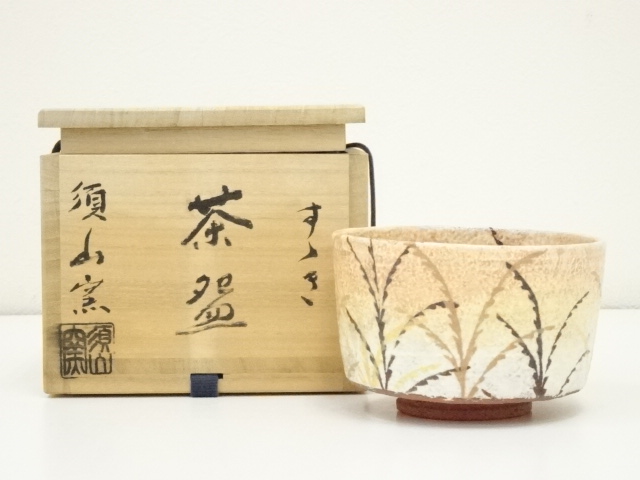 すゝき
茶盌
須山窯
須山窯